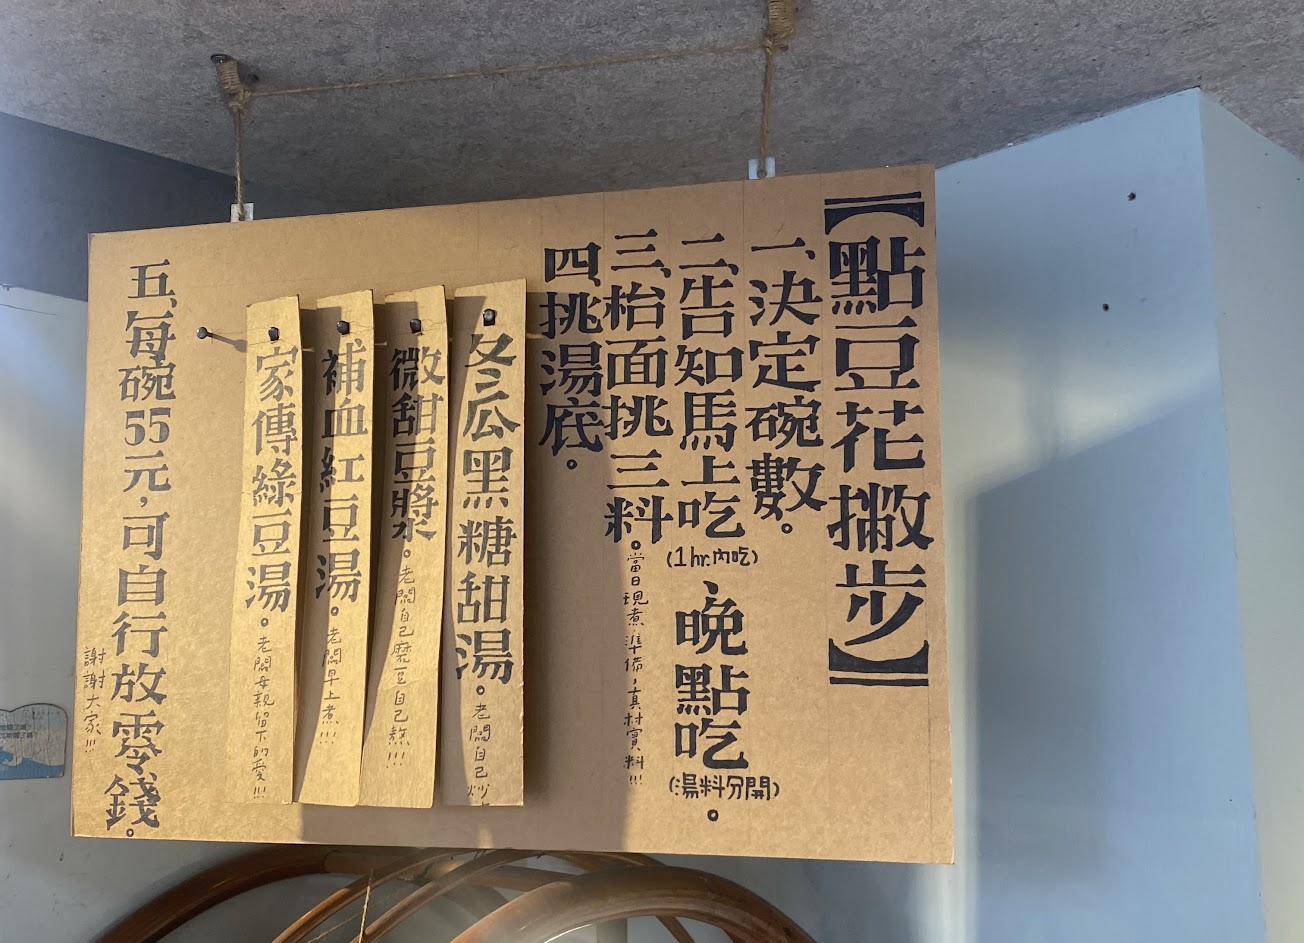 【點豆花撇步】
一、決定碗數。
二、告知馬上吃(1hr.內吃)、晚點吃(湯料分開)。
三、枱面挑三料。當日現煮準備,真材實料!!!
四、挑湯底。
冬瓜黑糖甜湯。老闆自己炒
微甜豆漿。老闆自己磨豆自己熬!!!
補血紅豆湯。老闆早上煮!!!
家傳綠豆湯。老闆母親留下的愛!!!
五、每碗55元,可自行放零錢。
謝謝大家!!!